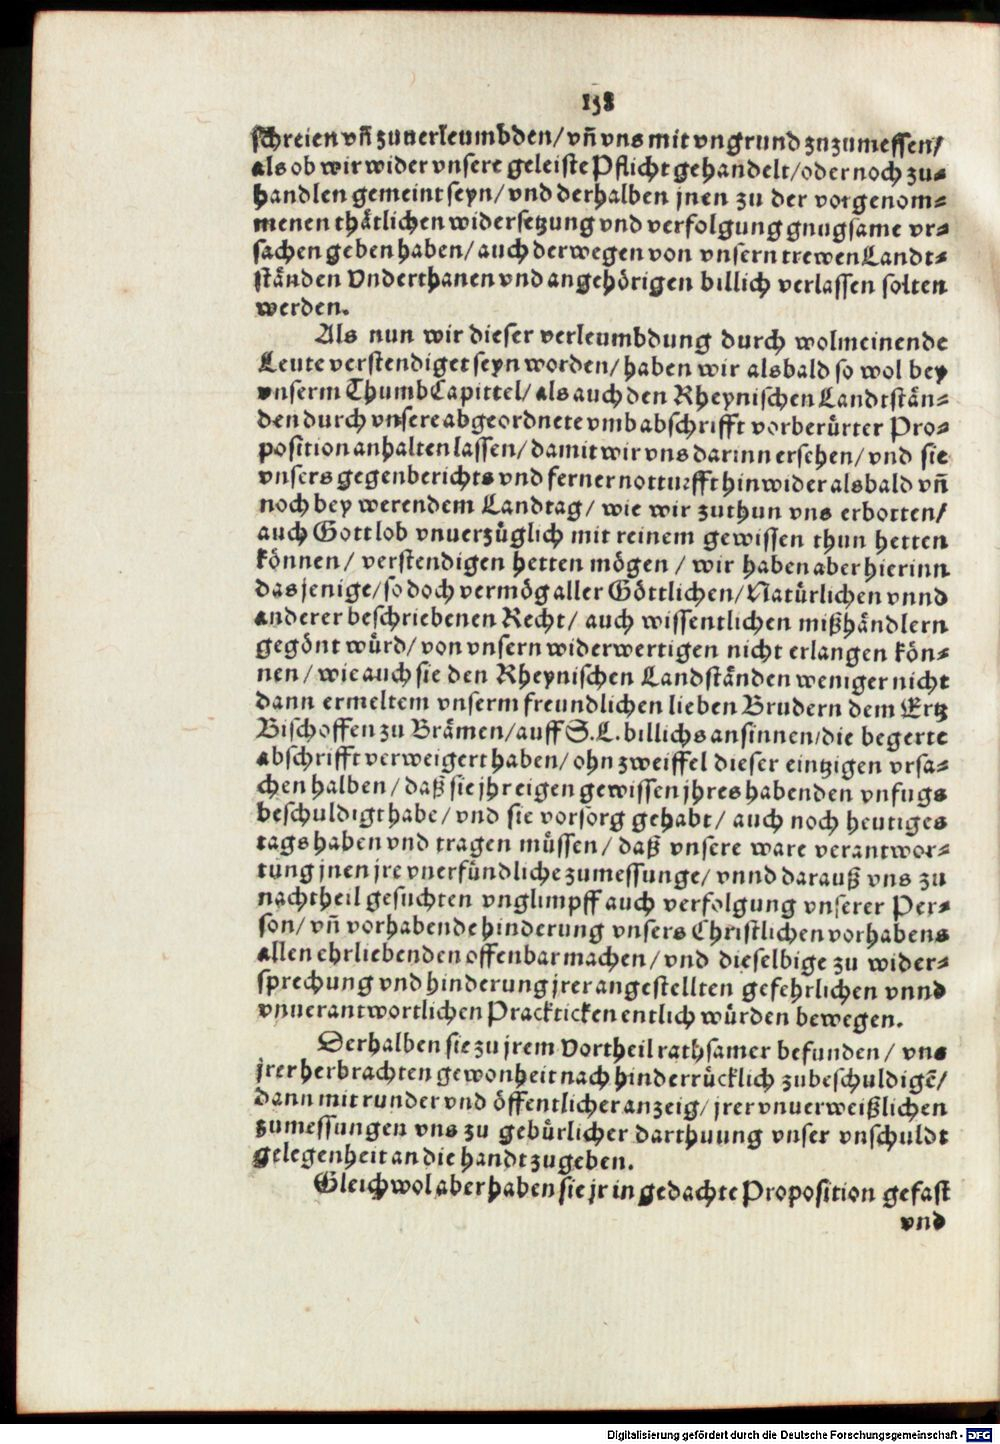 138
schreien vñ zuuerleumbden/ vñ vns mit vngrund zuzumessen/
als ob wir wider vnsere geleiste Pflicht gehandelt/ oder noch zu-
handlen gemeint seyn/ vnd derhalben jnen zu der vorgenom-
menen thätlichen widersetzung vnd verfolgung gnugsame vr-
sachen geben haben/ auch derwegen von vnsern trewen Landt-
ständen Vnderthanen vnd angehörigen billich verlassen solten
werden.
Als nun wir dieser verleumbdung durch wolmeinende
Leute verstendiget seyn worden/ haben wir alsbald so wol bey
vnserm ThumbCapittel/ als auch den Rheynischen Landtstän-
den durch vnsere abgeordnete vmb abschrifft vorberürter Pro-
position anhalten lassen/ damit wir vns darinn ersehen/ vnd sie
vnsers gegenberichts vnd ferner notturfft hinwider alsbald vñ
noch bey werendem Landtag/ wie wir zuthun vns erbotten/
auch Gott lob vnuerzüglich mit reinem gewissen thun hetten
können/ verstendigen hetten mögen/ wir haben aber hierinn
das jenige/ so doch vermög aller Göttlichen/ Natürlichen vnnd
anderer beschriebenen Recht/ auch wissentlichen mißhändlern
gegönt würd/ von vnsern widerwertigen nicht erlangen kön-
nen/ wie auch sie den Rheynischen Landständen weniger nicht
dann ermeltem vnserm freundlichen lieben Brudern dem Ertz
Bischoffen zu Brämen/ auff S. L. billichs ansinnen/ die begerte
abschrifft verweigert haben/ ohn zweiffel dieser eintzigen vrsa-
chen halben/ daß sie jhr eigen gewissen jhres habenden vnfugs
beschuldigt habe/ vnd sie vorsorg gehabt/ auch noch heutiges
tags haben vnd tragen müssen/ daß vnsere ware verantwor-
tung jnen jre vnerfündliche zumessunge/ vnnd darauß vns zu
nachtheil gesuchten vnglimpff auch verfolgung vnserer Per-
son/ vñ vorhabende hinderung vnsers Christlichen vorhabens
allen ehrliebenden offenbar machen/ vnd dieselbige zu wider-
sprechung vnd hinderung jrer angestellten gefehrlichen vnnd
vnuerantwortlichen Prackticken entlich würden bewegen.
Derhalben sie zu jrem Vortheil rathsamer befunden/ vns
jrer herbrachten gewonheit nach hinderrücklich zubeschuldigẽ/
dann mit runder vnd öffentlicher anzeig/ jrer vnuerweißlichen
zumessungen vns zu gebürlicher darthuung vnser vnschuldt
gelegenheit an die handt zugeben.
Gleichwol aber haben sie jr in gedachte Proposition gefast
vnd
Digitalisierung gefördert durch die Deutsche Forschungsgemeinschaft - DFG